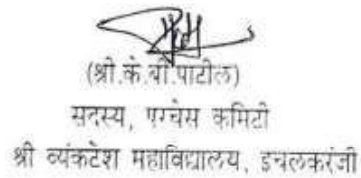 (श्री.के.बी.पाटील)
सदस्य, परचेस कमिटी
श्री व्यंकटेश महाविद्यालय, इचलकरंजी